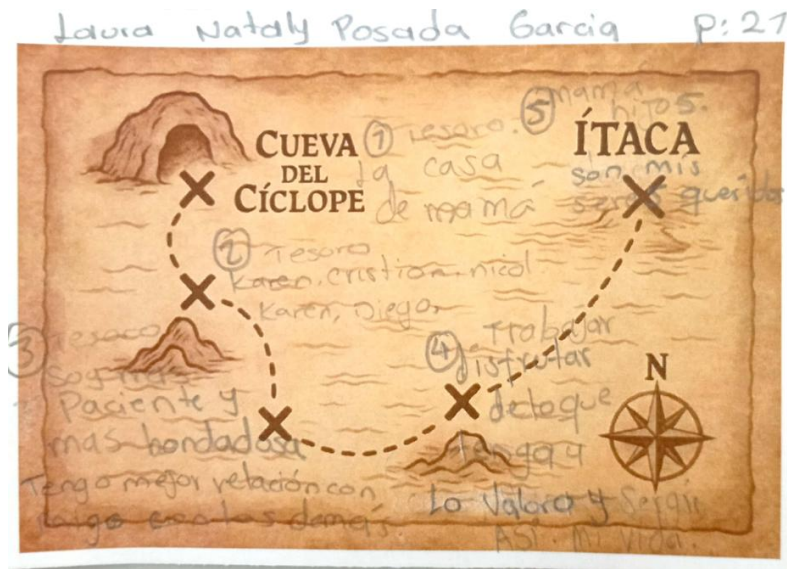 Laura Nataly Posada Garcia P: 21
CUEVA
DEL
CÍCLOPE
① Tesoro.
la casa
de mamá
⑤ mamá
hijos.
ÍTACA
son mis
seres queridos
② Tesoro
Karen, cristian, nicol
Karen, Diego
③ Tesoro
Soy mas
Paciente y
mas bondadosa
Tengo mejor relación con
los demás
④ Trabajar
disfrutar
de lo que
tenga y
Lo Valoro y Seguir
ASí Mi Vida.
N